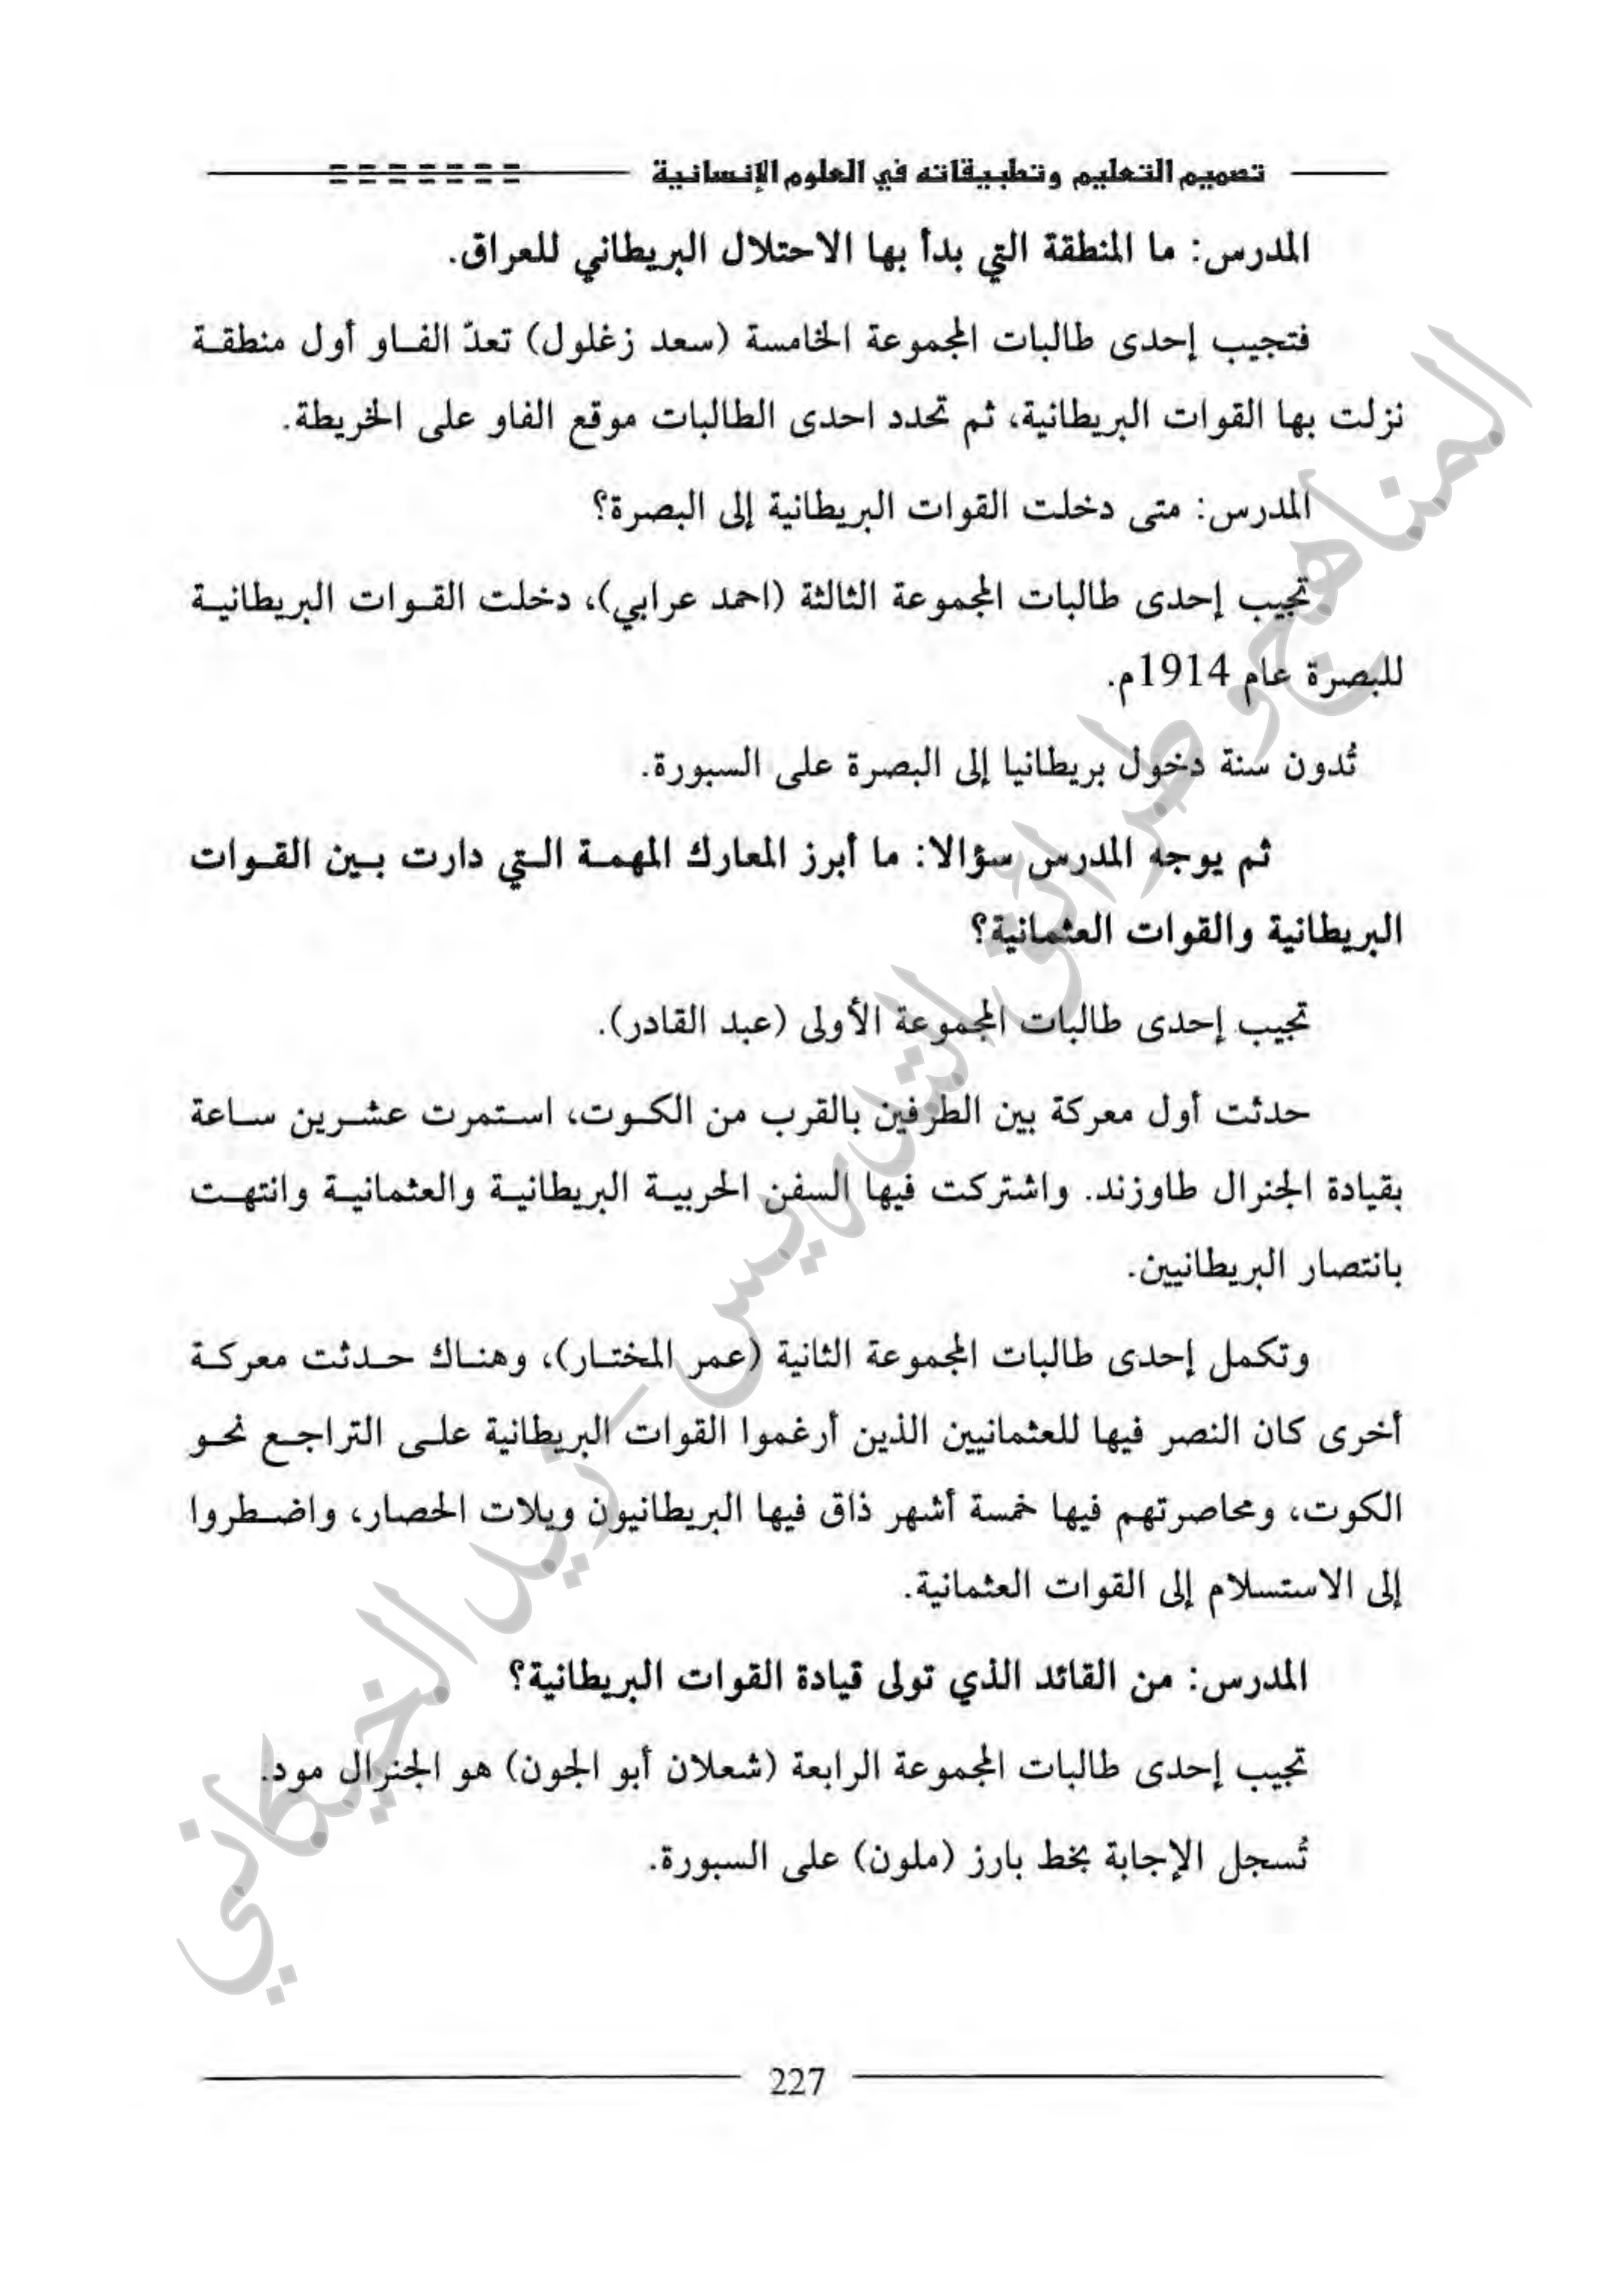 تصميم التعليم وتطبيقاته في العلوم الإنسانية
المدرس: ما المنطقة التي بدأ بها الاحتلال البريطاني للعراق.
فتجيب إحدى طالبات المجموعة الخامسة (سعد زغلول) تعدّ الفاو أول منطقة
نزلت بها القوات البريطانية، ثم تحدد احدى الطالبات موقع الفاو على الخريطة.
المدرس: متى دخلت القوات البريطانية إلى البصرة؟
تجيب إحدى طالبات المجموعة الثالثة (احمد عرابي)، دخلت القوات البريطانية
للبصرة عام 1914م.
تُدون سنة دخول بريطانيا إلى البصرة على السبورة.
ثم يوجه المدرس سؤالا: ما أبرز المعارك المهمة التي دارت بين القوات
البريطانية والقوات العثمانية؟
تجيب إحدى طالبات المجموعة الأولى (عبد القادر).
حدثت أول معركة بين الطرفين بالقرب من الكوت، استمرت عشرين ساعة
بقيادة الجنرال طاوزند. واشتركت فيها السفن الحربية البريطانية والعثمانية وانتهت
بانتصار البريطانيين.
وتكمل إحدى طالبات المجموعة الثانية (عمر المختار)، وهناك حدثت معركة
أخرى كان النصر فيها للعثمانيين الذين أرغموا القوات البريطانية على التراجع نحو
الكوت، ومحاصرتهم فيها خمسة أشهر ذاق فيها البريطانيون ويلات الحصار، واضطروا
إلى الاستسلام إلى القوات العثمانية.
المدرس: من القائد الذي تولى قيادة القوات البريطانية؟
تجيب إحدى طالبات المجموعة الرابعة (شعلان أبو الجون) هو الجنرال مود.
تُسجل الإجابة بخط بارز (ملون) على السبورة.
227
المناهج وطرائق التدريس - زيد الخيكاني